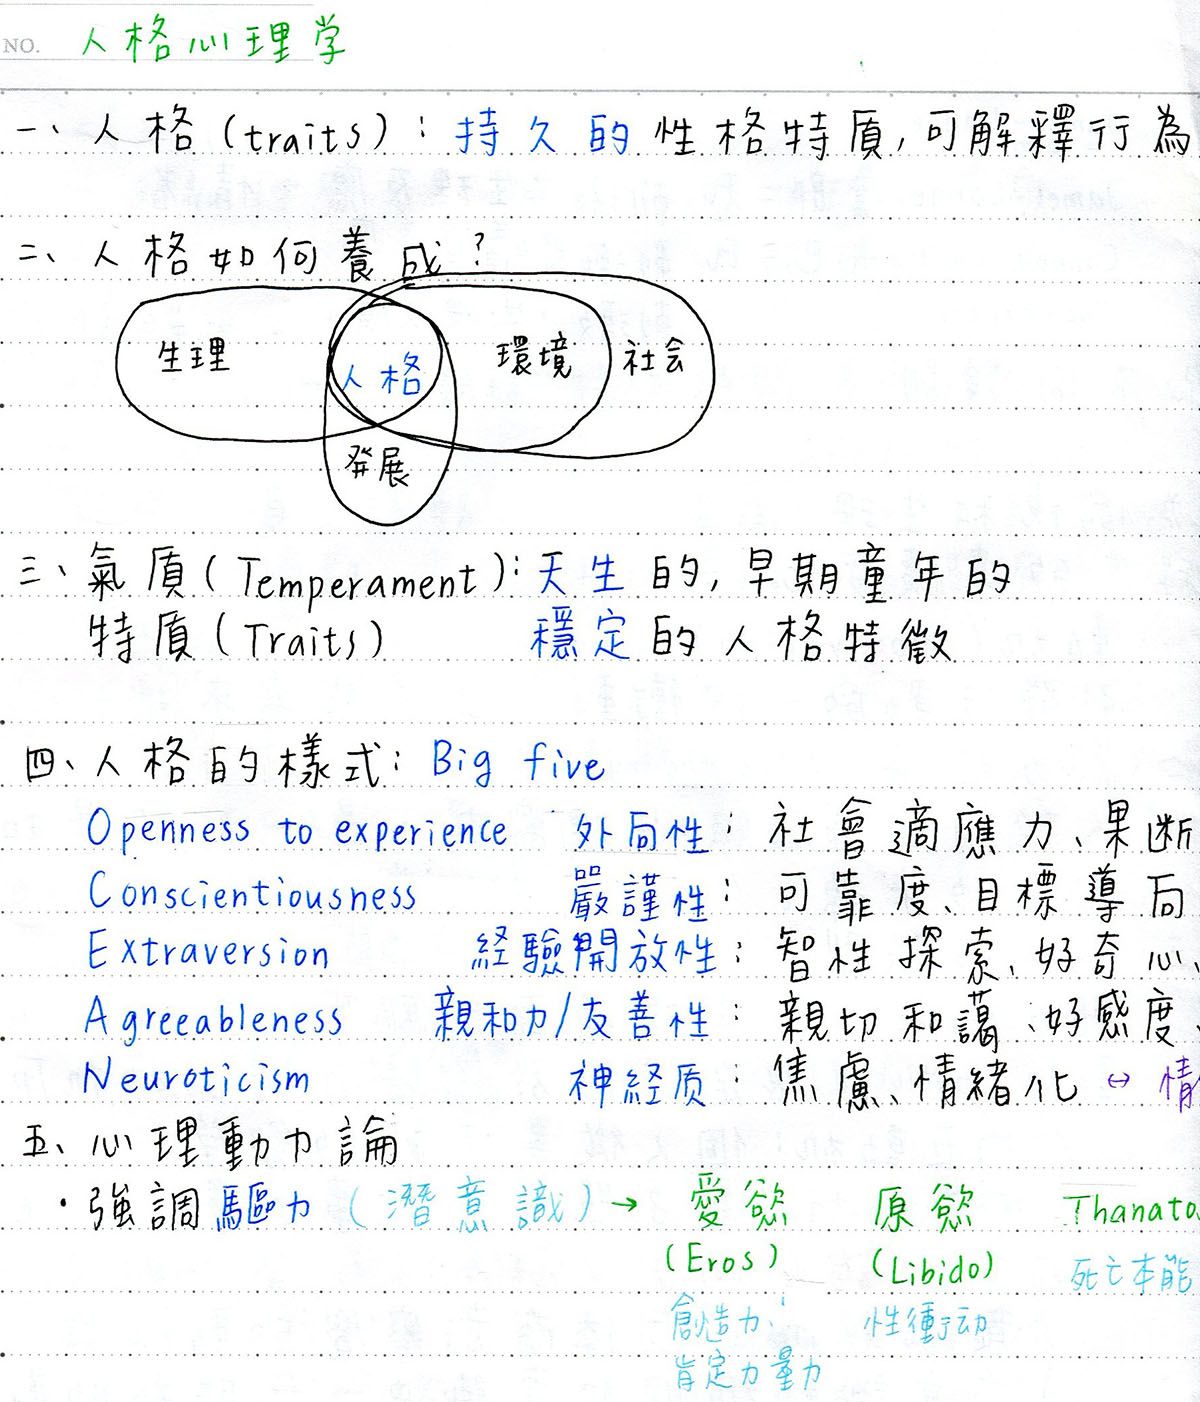 NO. 人格心理学
一、人格(traits):持久的性格特质,可解釋行為
二、人格如何養成?
生理 人格 環境 社会
発展
三、氣质(Temperament):天生的,早期童年的
特质(Traits) 穩定的人格特徵
四、人格的樣式:Big five
Openness to experience 外向性:社會適應力、果断
Conscientiousness 嚴謹性:可靠度、目標導向
Extraversion 経驗開放性:智性探索、好奇心、
Agreeableness 親和力/友善性:親切和藹、好感度、
Neuroticism 神经质:焦慮、情緒化 ↔ 情
五、心理動力論
・強調驅力(潛意識)→ 愛慾 原慾 Thanatos
(Eros) (Libido) 死亡本能
創造力; 性衝动
肯定力量力